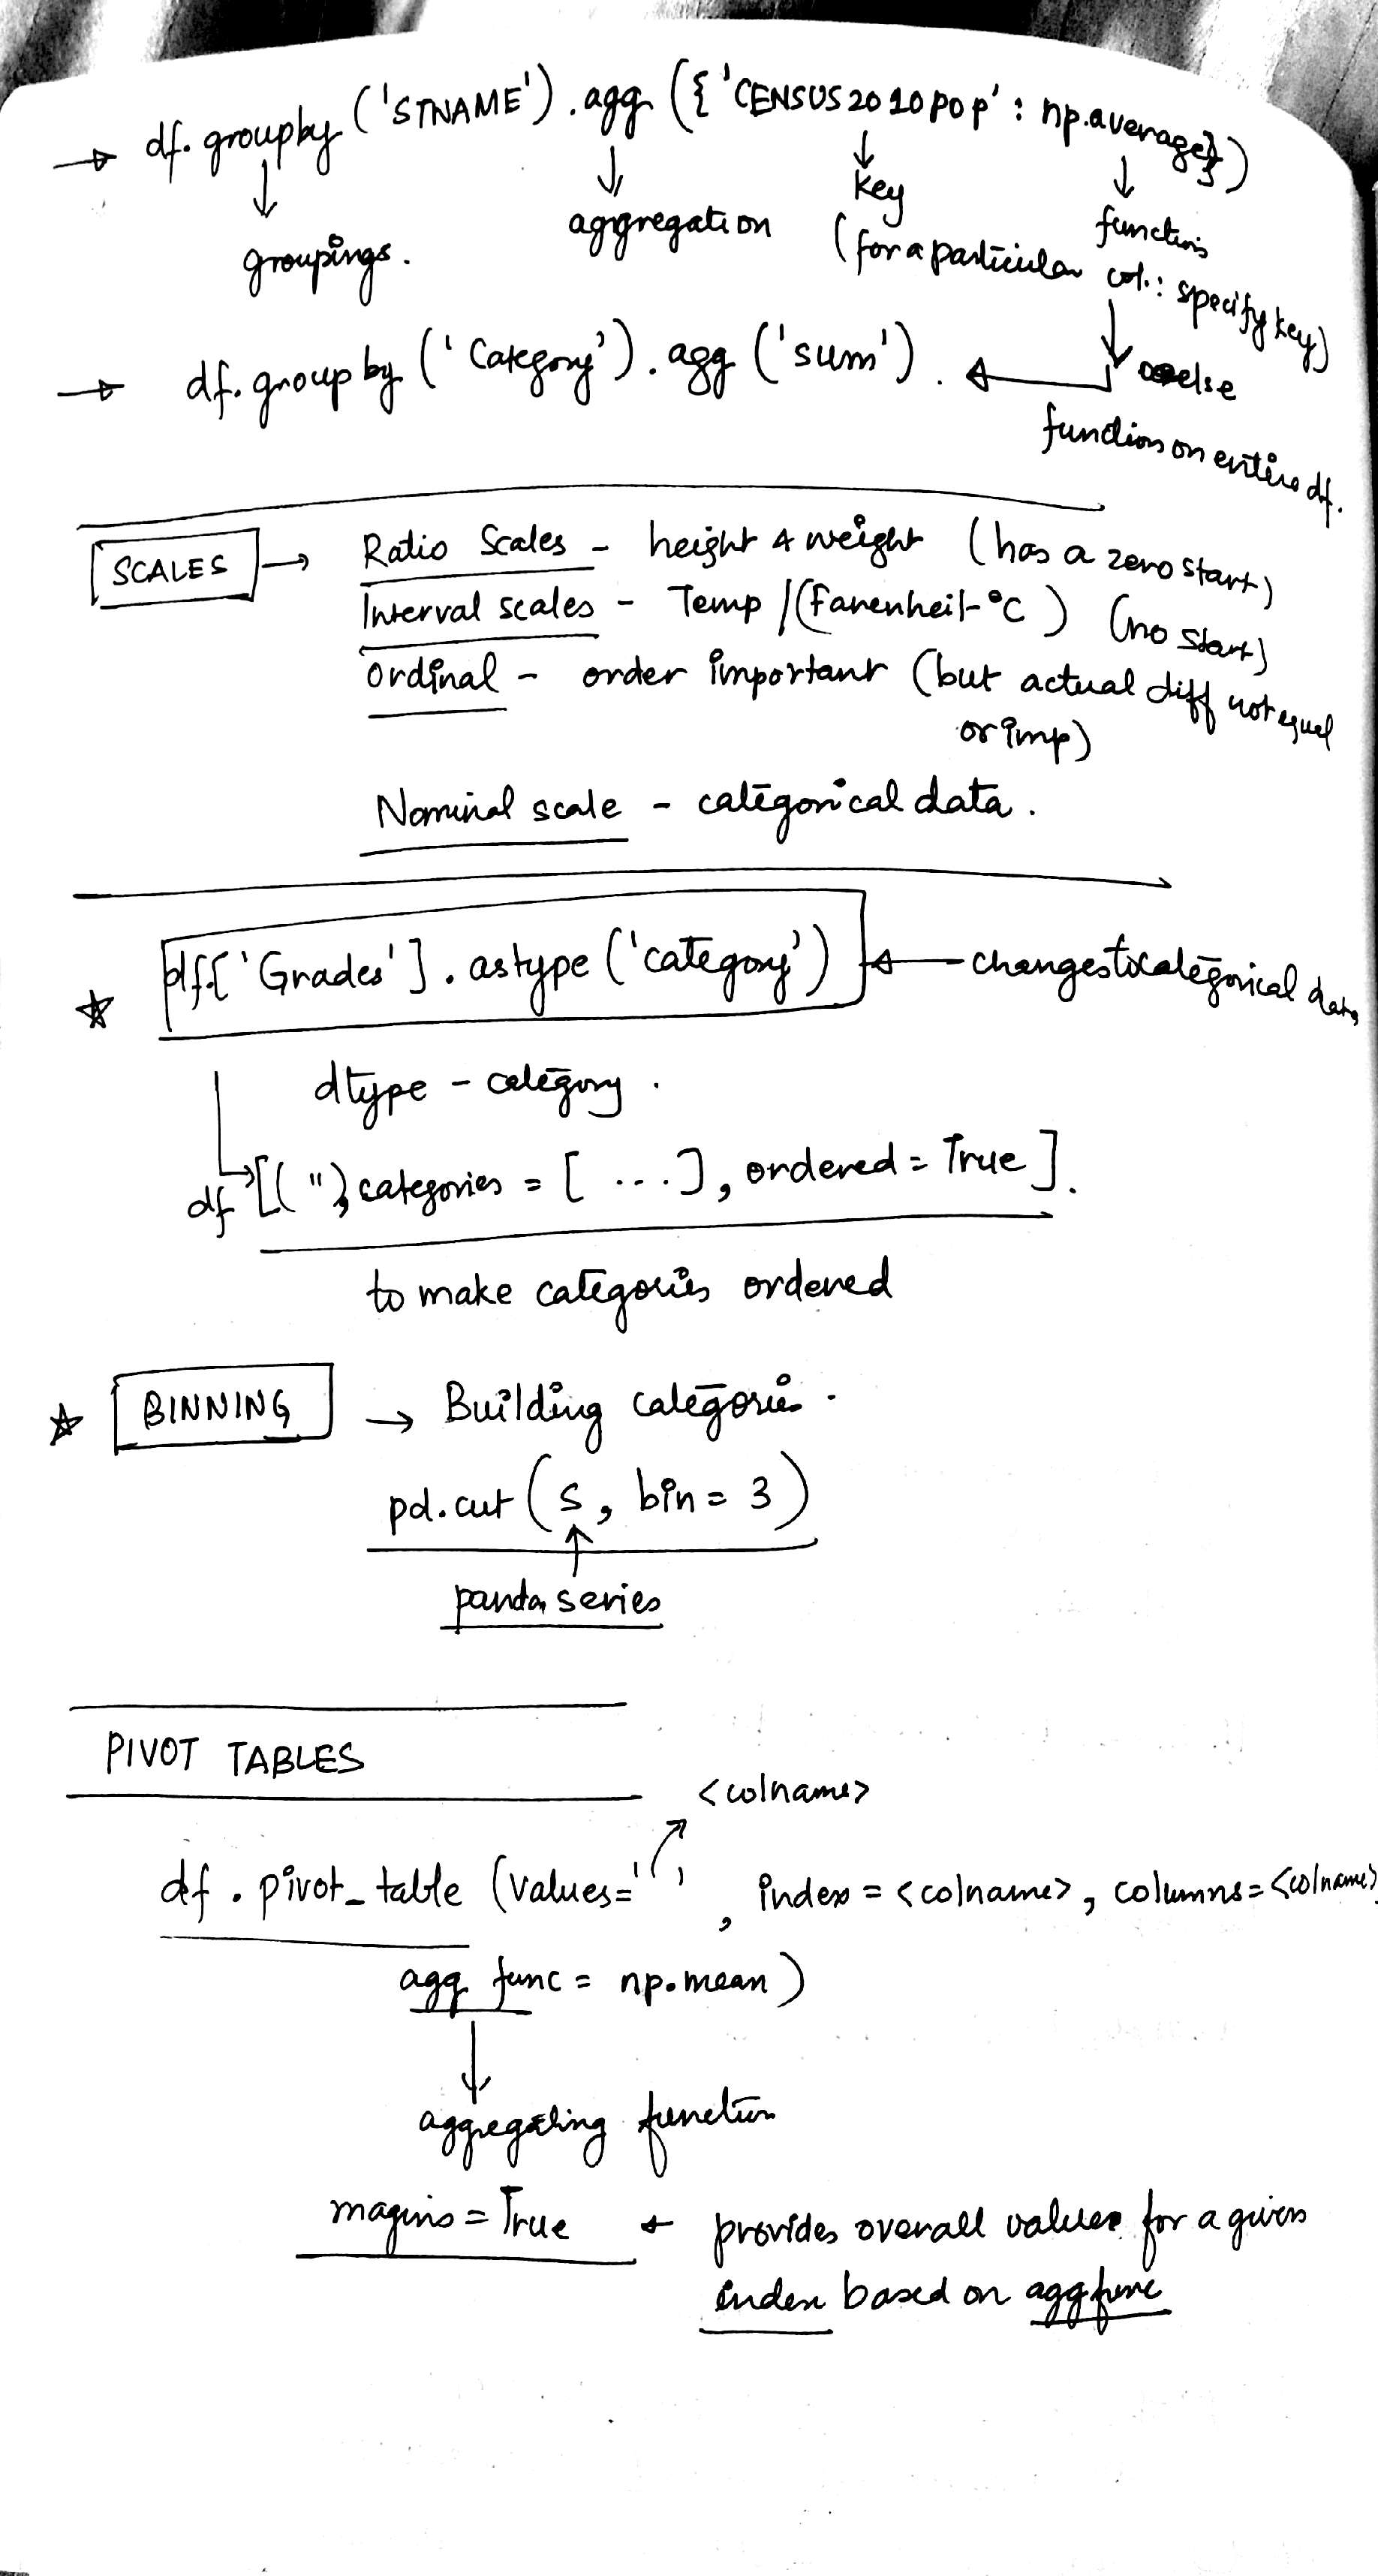 → df.groupby ('STNAME').agg ({'CENSUS2010pop' : np.average})
groupings.
aggregation
key
(for a particular col.: specify key)
functions
→ df.groupby ('Category').agg ('sum').
else
function on entire df.
SCALES → Ratio Scales - height & weight (has a zero start)
Interval scales - Temp /(Farenheit-°C) (no start)
Ordinal - order important (but actual diff not equal
or imp)
Nominal scale - categorical data.
df['Grades'].astype('category') ← changes to categorical data
dtype - category.
df [("), categories = [ ... ], ordered = True ].
to make categories ordered
BINNING → Building categories.
pd.cut (s, bin = 3)
panda series
PIVOT TABLES
<colname>
df.pivot_table (values=' ', index = <colname>, columns=<colname>
agg func = np.mean)
aggregating function
magins = True ← provides overall values for a given
index based on aggfunc